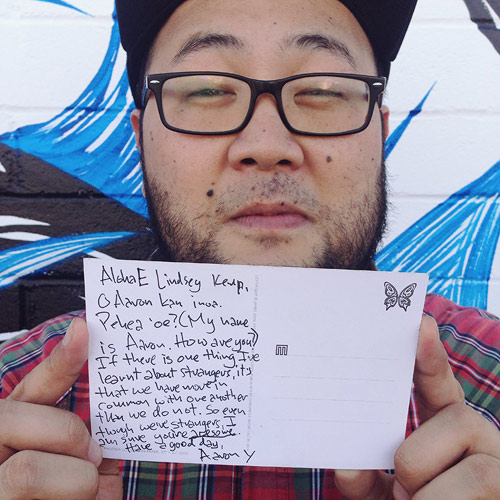 AlohaE Lindsey Kemp,
O Aaron kau inoa.
Pehea 'oe? (My name
is Aaron. How are you?)
If there is one thing I've
learnt about strangers, it's
that we have more in
common with one another
than we do not. So even
though we're strangers, I
am sure you're awesome.
Have a good day,
Aaron Y